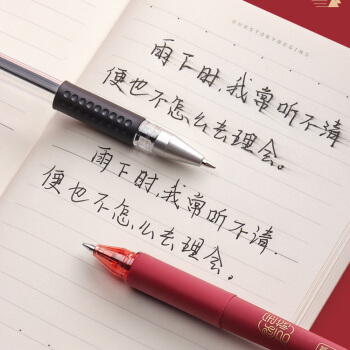 OURSTORYBEGINS
雨下时,我常听不清
便也不怎么去理会。
雨下时,我常听不清.
便也不怎么去理会。